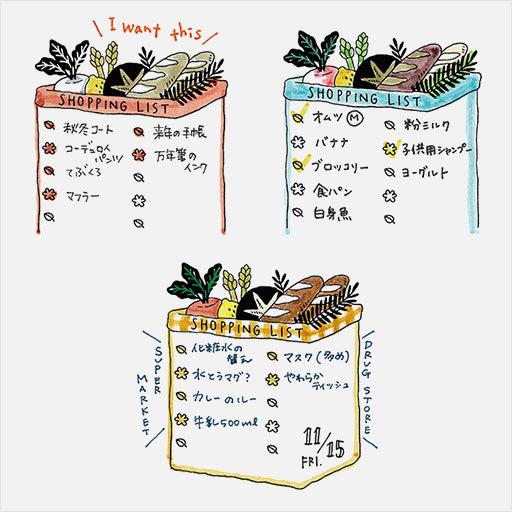 I want this
SHOPPING LIST
秋冬コート
コーデュロイ
パンツ
てぶくろ
マフラー
来年の手帳
万年筆の
インク
SHOPPING LIST
オムツ M
バナナ
ブロッコリー
食パン
白身魚
粉ミルク
子供用シャンプー
ヨーグルト
SUPER
MARKET
SHOPPING LIST
化粧水の
替え
水とうマグ?
カレーのルー
牛乳500ml
マスク(多め)
やわらか
ティッシュ
11/15
FRI.
DRUG STORE